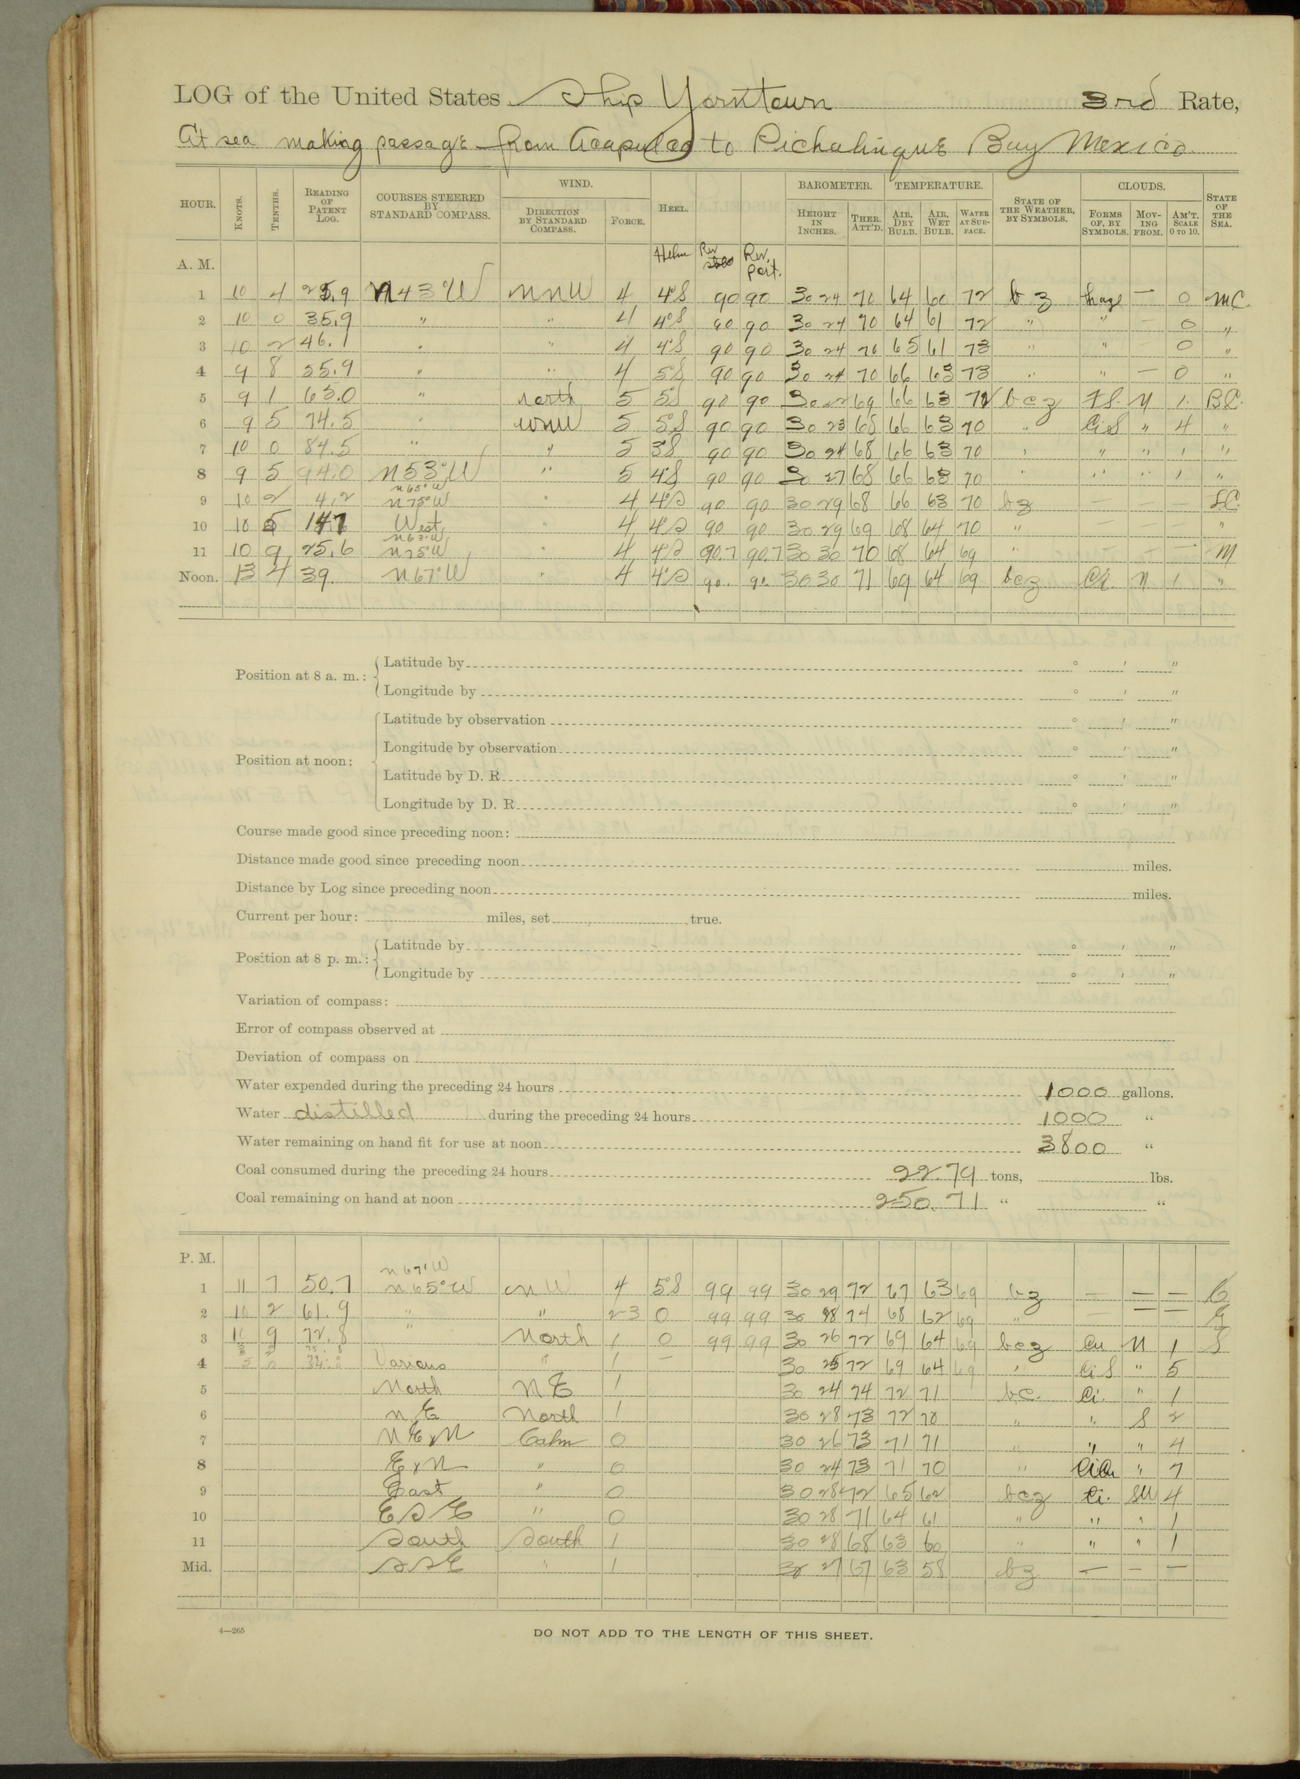 LOG of the United States Ship Yorktown 3rd Rate,
At sea making passage from Acapulco to Pichalinque Bay Mexico
HOUR. KNOTS. TENTHS. READING OF PATENT LOG. COURSES STEERED BY STANDARD COMPASS. WIND. DIRECTION BY STANDARD COMPASS. FORCE. HEEL. BAROMETER. HEIGHT IN INCHES. THER. ATT'D. TEMPERATURE. AIR, DRY BULB. AIR, WET BULB. WATER AT SURFACE. STATE OF THE WEATHER, BY SYMBOLS. CLOUDS. FORMS OF, BY SYMBOLS. MOVING FROM. AM'T. SCALE 0 TO 10. STATE OF THE SEA.
A. M. Helm Rev Rev. port.
1 10 4 25.9 N43°W NNW 4 4°S 90 90 30 24 70 64 60 72 b z haze — 0 MC
2 10 0 35.9 " " 4 4°S 90 90 30 24 70 64 61 72 " " — 0 "
3 10 2 46.1 " " 4 4°S 90 90 30 24 70 65 61 73 " " — 0 "
4 9 8 55.9 " " 4 5°S 90 90 30 24 70 66 63 73 " " — 0 "
5 9 1 63.0 " North 5 5°S 90 90 30 22 69 66 63 72 bcz N 1 BC
6 9 5 74.5 " WNW 5 5°S 90 90 30 23 68 66 63 70 " CiS " 4 "
7 10 0 84.5 " " 5 3°S 90 90 30 24 68 66 63 70 " " " 1 "
8 9 5 94.0 N53°W " 5 4°S 90 90 30 27 68 66 63 70 " " " 1 "
N65°W
9 10 2 4.2 N75°W " 4 4°S 90 90 30 29 68 66 63 70 bz — — — LC
10 10 5 14.7 West " 4 4°S 90 90 30 29 69 68 64 70 " — — — "
N63°W
11 10 9 25.6 N75°W " 4 4°S 90.7 90.7 30 30 70 68 64 69 " — — — M
Noon. 13 4 39. N67°W " 4 4°S 90. 90. 30 30 71 69 64 69 bcz Ci N 1 "
Position at 8 a. m.: Latitude by ° ' "
Longitude by ° ' "
Position at noon: Latitude by observation ° ' "
Longitude by observation ° ' "
Latitude by D. R. ° ' "
Longitude by D. R. ° ' "
Course made good since preceding noon:
Distance made good since preceding noon miles.
Distance by Log since preceding noon miles.
Current per hour: miles, set , true.
Position at 8 p. m.: Latitude by ° ' "
Longitude by ° ' "
Variation of compass:
Error of compass observed at
Deviation of compass on
Water expended during the preceding 24 hours 1000 gallons.
Water distilled during the preceding 24 hours 1000 "
Water remaining on hand fit for use at noon 3800 "
Coal consumed during the preceding 24 hours 22.79 tons, lbs.
Coal remaining on hand at noon 250.71 " "
P. M.
N67°W
1 11 7 50.7 N65°W NW 4 5°S 99 99 30 29 72 67 63 69 bz — — — C
2 10 2 61.9 " " 2-3 0 99 99 30 28 74 68 62 69 " — — —
3 10 9 72.8 " North 1 0 99 99 30 26 72 69 64 69 bcz Cu N 1 S
4 Various " 1 — 30 25 72 69 64 69 " CiS " 5
5 North NE 1 30 24 74 72 71 bc. Ci. " 1
6 NE North 1 30 28 73 72 70 " " S 2
7 NExN Calm 0 30 26 73 71 71 " " " 4
8 ExN " 0 30 24 73 71 70 " CiCu " 7
9 East " 0 30 28 72 65 62 bcz Ci. SW 4
10 ESE " 0 30 28 71 64 61 " " " 1
11 South South 1 30 28 68 63 60 " " " 1
Mid. SSE " 1 30 27 67 63 58 bz — — —
4—265
DO NOT ADD TO THE LENGTH OF THIS SHEET.